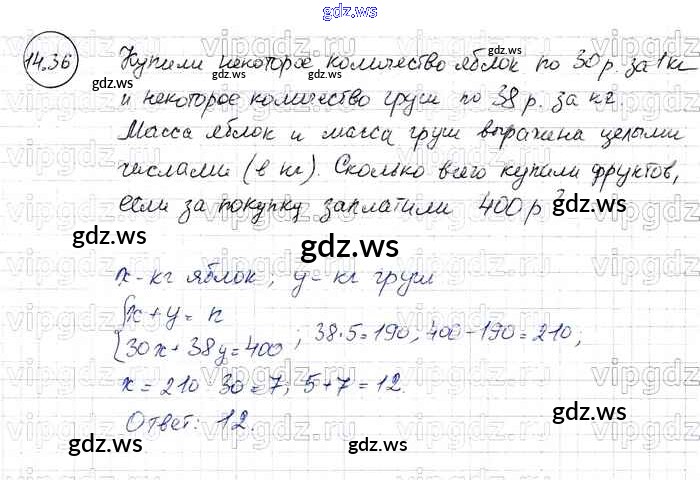 gdz.ws
14.36 Купили некоторое количество яблок по 30 р. за 1 кг
и некоторое количество груш по 38 р. за кг.
Масса яблок и масса груш выражена целыми
числами (в кг). Сколько всего купили фруктов,
если за покупку заплатили 400 р?
gdz.ws
gdz.ws
x - кг яблок; y - кг груш
{x + y = n
{30x + 38y = 400; 38·5=190, 400-190=210;
x = 210 : 30 = 7; 5+7=12.
Ответ: 12.
gdz.ws
gdz.ws